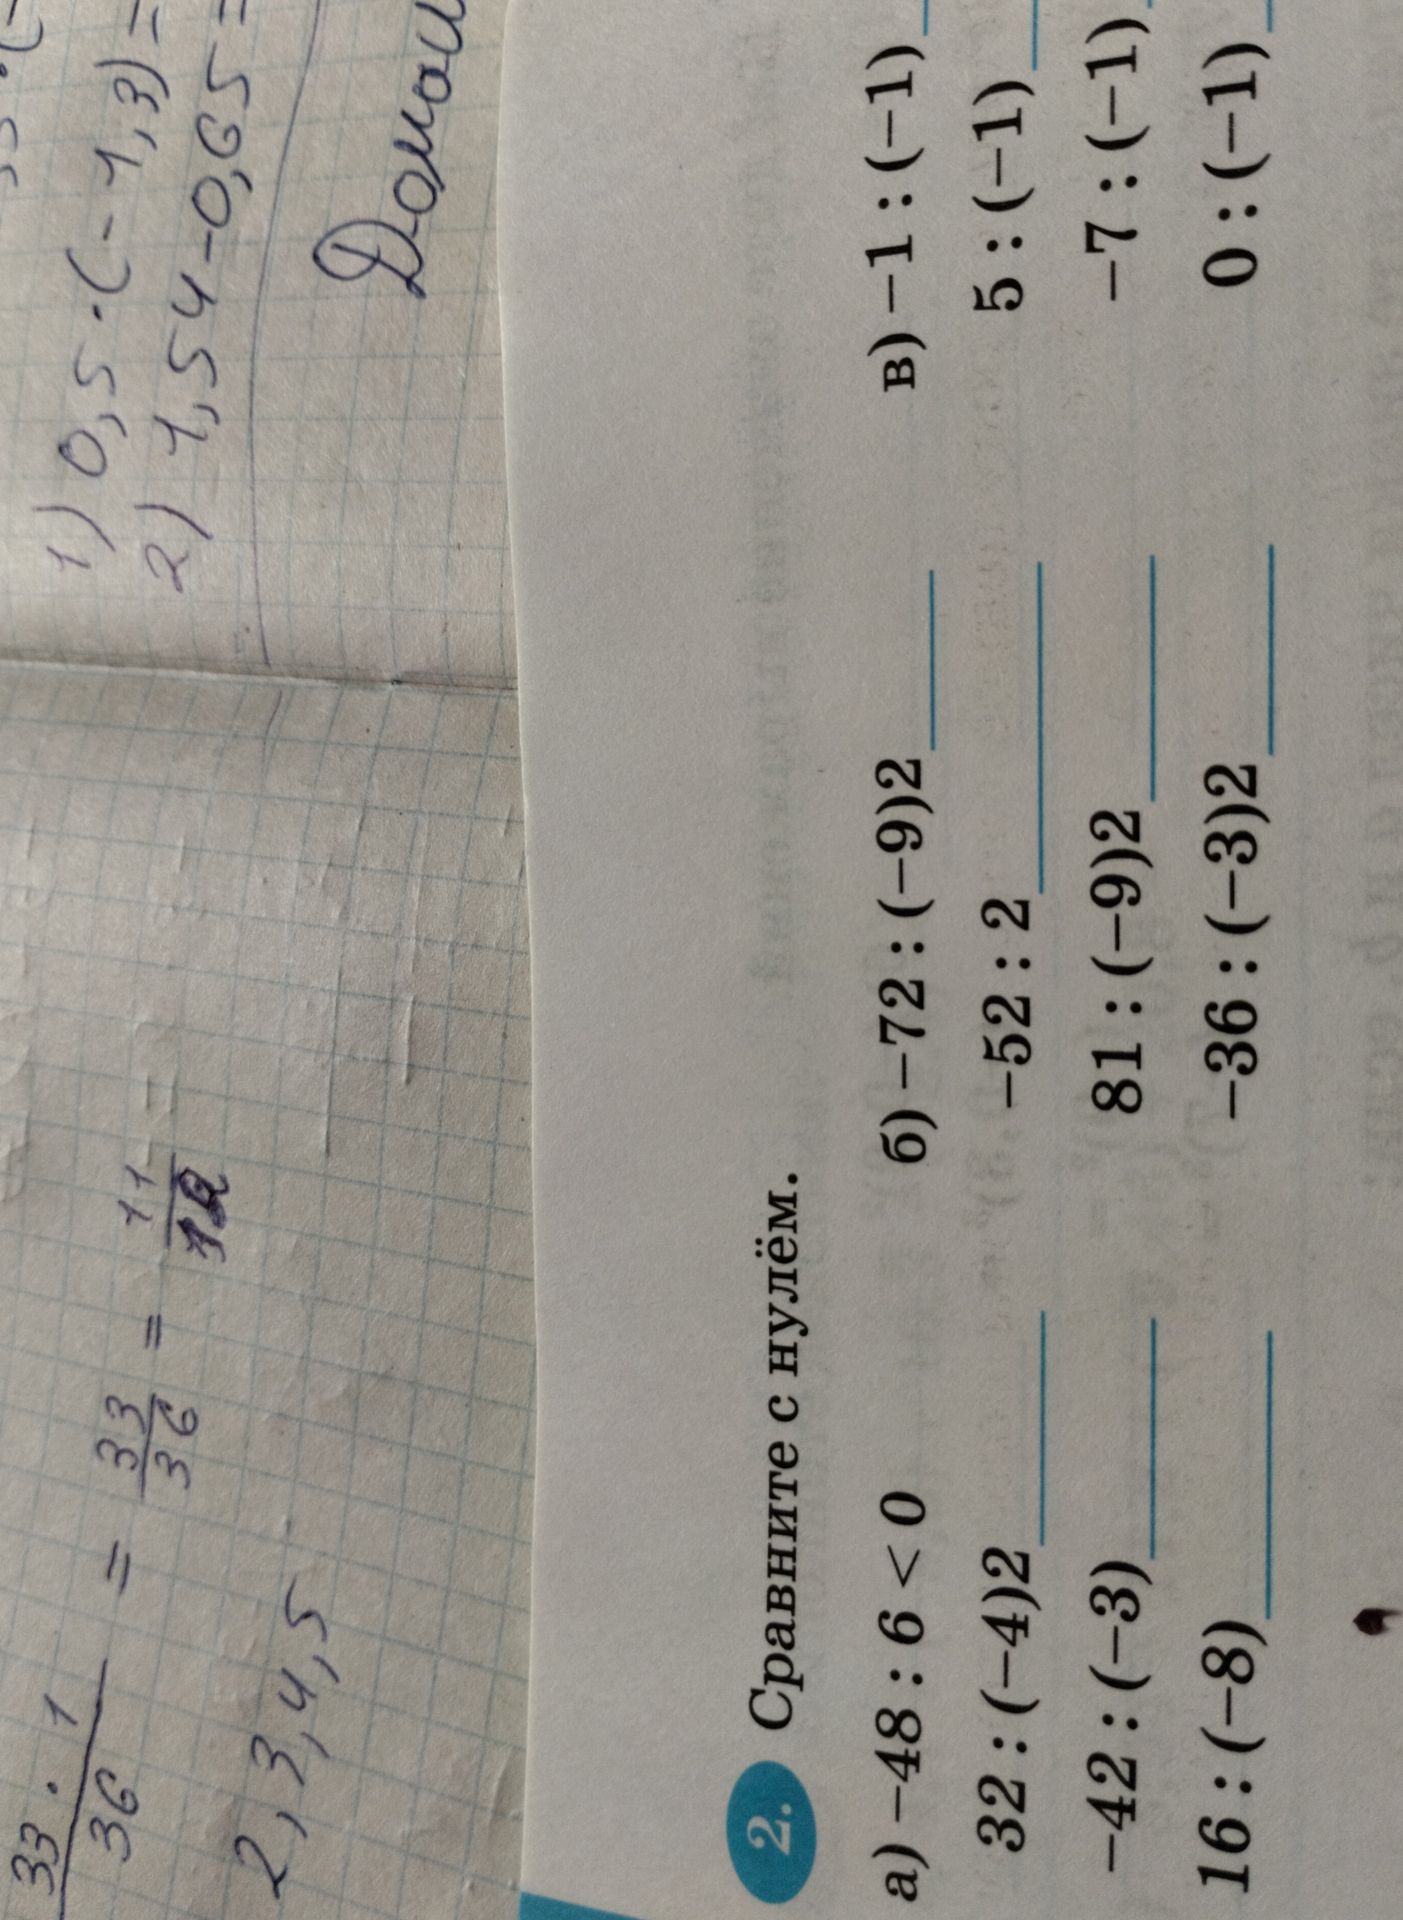 33 · 1
36
=
33
36
=
11
12
2, 3, 4, 5
1) 0,5 · (-1,3) =
2) 1,54 - 0,65 =
2. Сравните с нулём.
а) −48 : 6 < 0
32 : (−4)2
−42 : (−3)
16 : (−8)
б) −72 : (−9)2
−52 : 2
81 : (−9)2
−36 : (−3)2
в) −1 : (−1)
5 : (−1)
−7 : (−1)
0 : (−1)